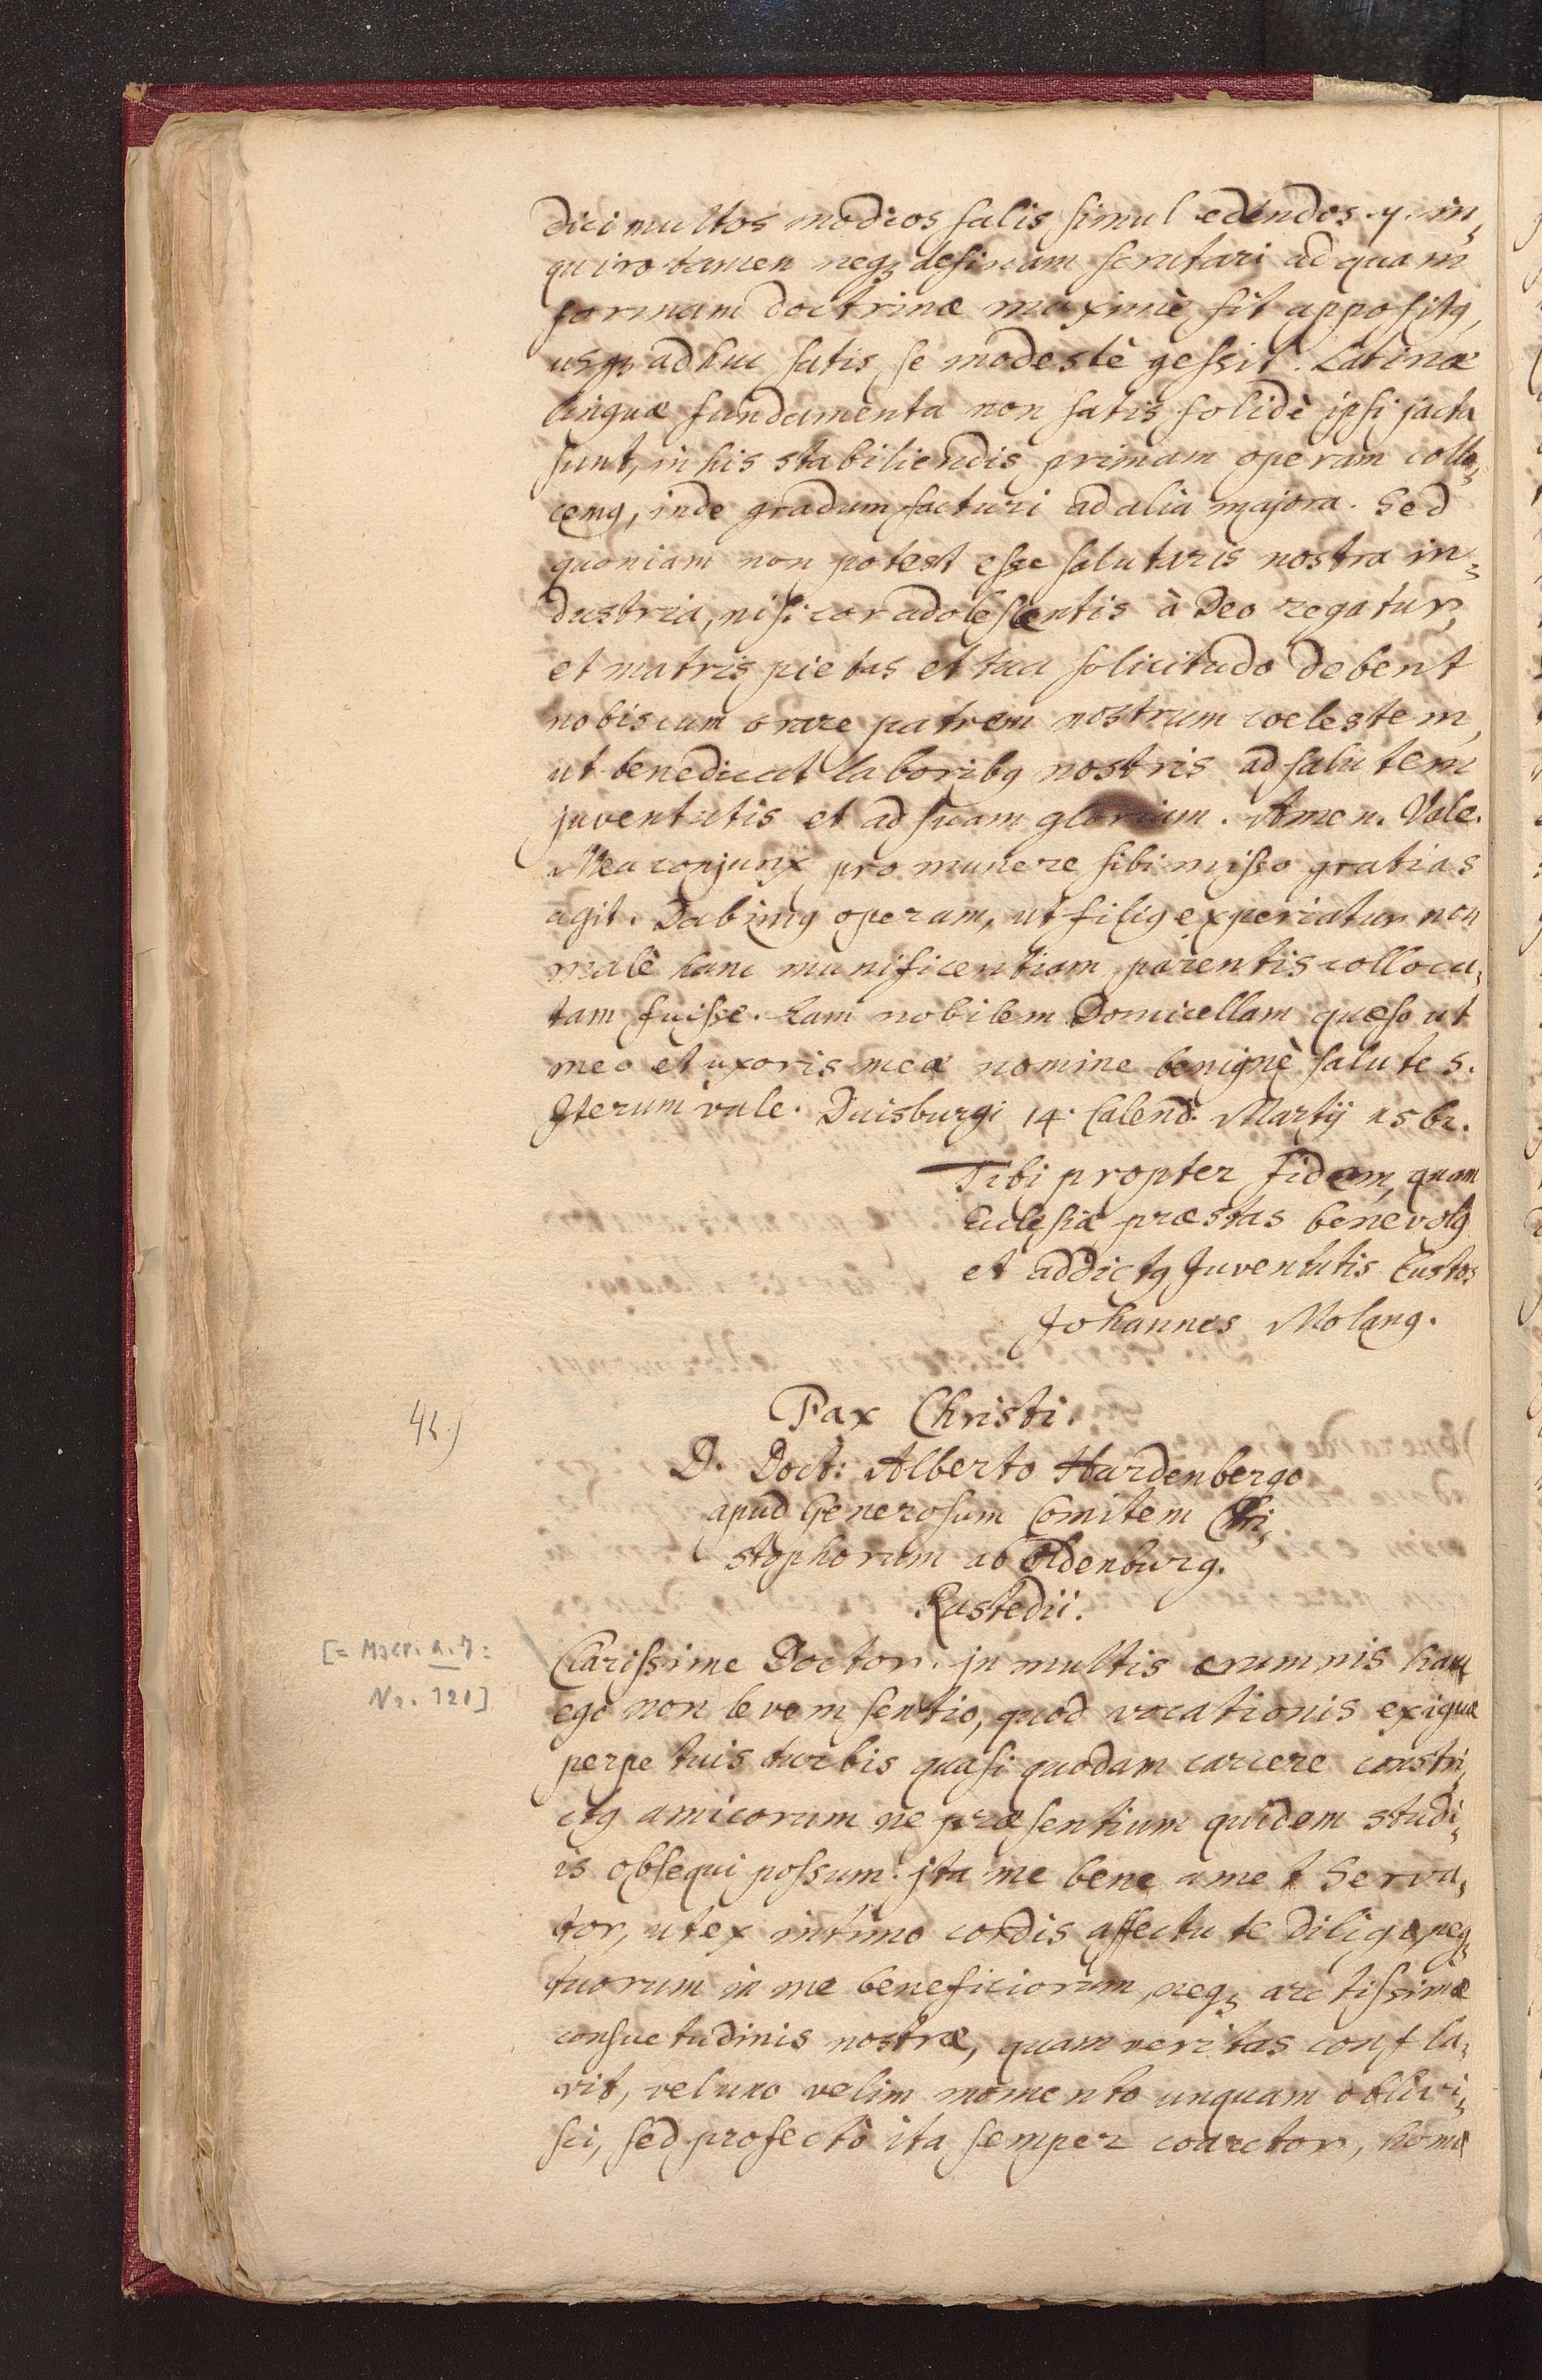 dici multos modios salis simul edendos. y. in,
quiro tamen neq; desinam scrutari ad quam
formam doctrinæ maximè sit appositq,
usq; adhuc satis se modestè gessit. Latinæ
linguæ fundamenta non satis solidè ipsi jacta
sunt, in his stabiliendis primam operam collo,
cemq, inde gradum facturi ad alia majora. Sed
quoniam non potest esse salutaris nostra in,
dustria, nisi cor adolescentis à Deo regatur,
et matris pietas et tua solicitudo debent
nobiscum orare patrem nostrum coelestem,
ut benedicat laboribq nostris ad salutem
juventutis et ad suam gloriam. Amen. Vale.
Mea conjunx pro munere sibi misso gratias
agit. Dabimq operam, ut filiq experiatur non
malè hanc munificentiam parentis colloca,
tam fuisse. Eam nobilem Domicellam quæso ut
meo et uxoris meæ nomine benignè salutes.
Iterum vale. Duisburgi 14. Calend. Martij
Tibi propter fidem, quam
Ecclesiæ præstas benevolq
et addictq Juventutis Custos
Johannes Molanq.
42.)
Pax Christi.
D. Doct: Alberto Hardenbergo
apud Generosum Comitem Chri,
stophorum ab Oldenburg.
Rastedii.
[= Mscr. a. 7:
Nr. 121]
Clarissime Doctor. jn multis ærumnis hanc
ego non levem sentio, quod vocationis exiguæ
perpetuis turbis quasi quodam carcere constri,
ctq amicorum ne præsentium quidem studi,
is obsequi possum. jta me bene amet Serva,
tor, ut ex intimo cordis affectu te diligo, neq;
tuorum in me beneficiorum, neq; arctissimæ
consuetudinis nostræ, quam veritas confla,
vit, vel uno velim momento unquam oblivi,
sci, sed profectò ita semper coarctor, homo